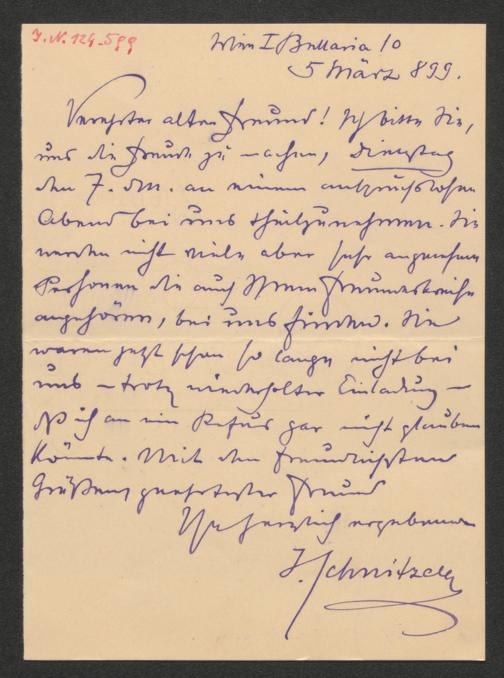 J.N. 124.599
Wien I Bellaria 10
5 März 899.
Verehrter alter Freund! Ich bitte Sie,
uns die Freude zu machen, Dienstag
den 7. dM. an einem anspruchslosen
Abend bei uns theilzunehmen. Sie
werden nicht viele aber sehr angenehme
Personen die auch Ihrem Freundeskreise
angehören, bei uns finden. Sie
waren jetzt schon so lange nicht bei
uns – trotz wiederholter Einladung –
ich an ein Refus gar nicht glauben
könnte. Mit den freundlichsten
Grüßen geehrtester Freund
Ihr herzlich ergebener
J. Schnitzler